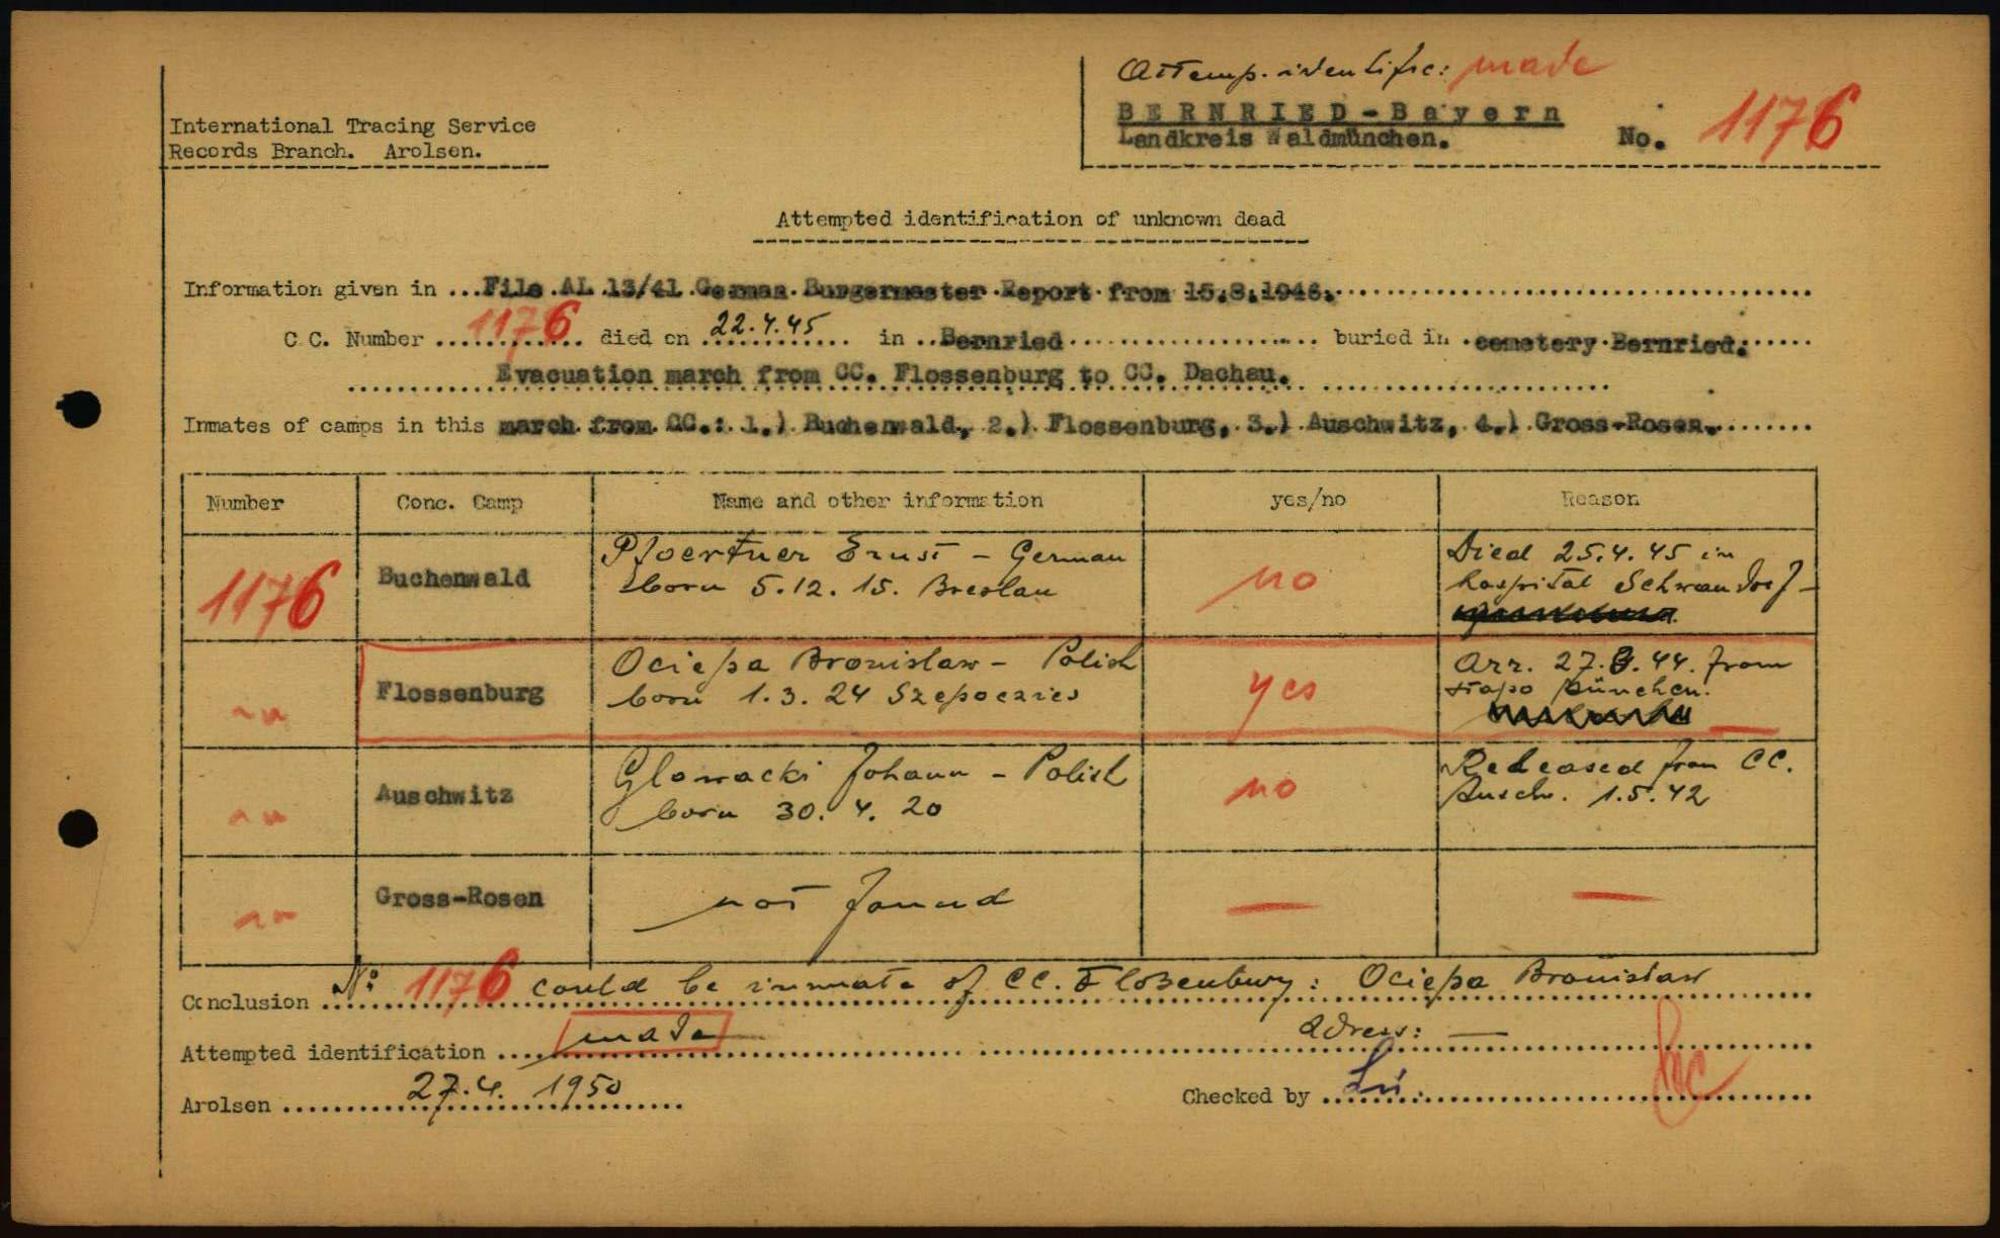 Attemp. identific: made
BERNRIED-Bayern
Landkreis Waldmünchen. No. 1176
International Tracing Service
Records Branch. Arolsen.
Attempted identification of unknown dead
Information given in File AL 13/41 German Burgermaster Report from 15.8.1946.
C.C. Number 1176 died on 22.4.45 in Bernried buried in cemetery Bernried.
Evacuation march from CC. Flossenburg to CC. Dachau.
Inmates of camps in this march from CC.: 1.) Buchenwald, 2.) Flossenburg, 3.) Auschwitz, 4.) Gross-Rosen.
Number Conc. Camp Name and other information yes/no Reason
1176 Buchenwald Pfoertner Ernst - German no Died 25.4.45 in
born 5.12.15. Breslau hospital Schwandorf -
Flossenburg Ociepa Bronislaw - Polish yes Arr. 27.8.44. from
born 1.3.24 Szepoczies stapo München.
Auschwitz Glowacki Johann - Polish no Released from CC.
born 30.4.20 Ausch. 1.5.42
Gross-Rosen not found — —
Conclusion No: 1176 could be inmate of CC. Floßenburg: Ociepa Bronislaw
Attempted identification made adress: —
Arolsen 27.4. 1950 Checked by